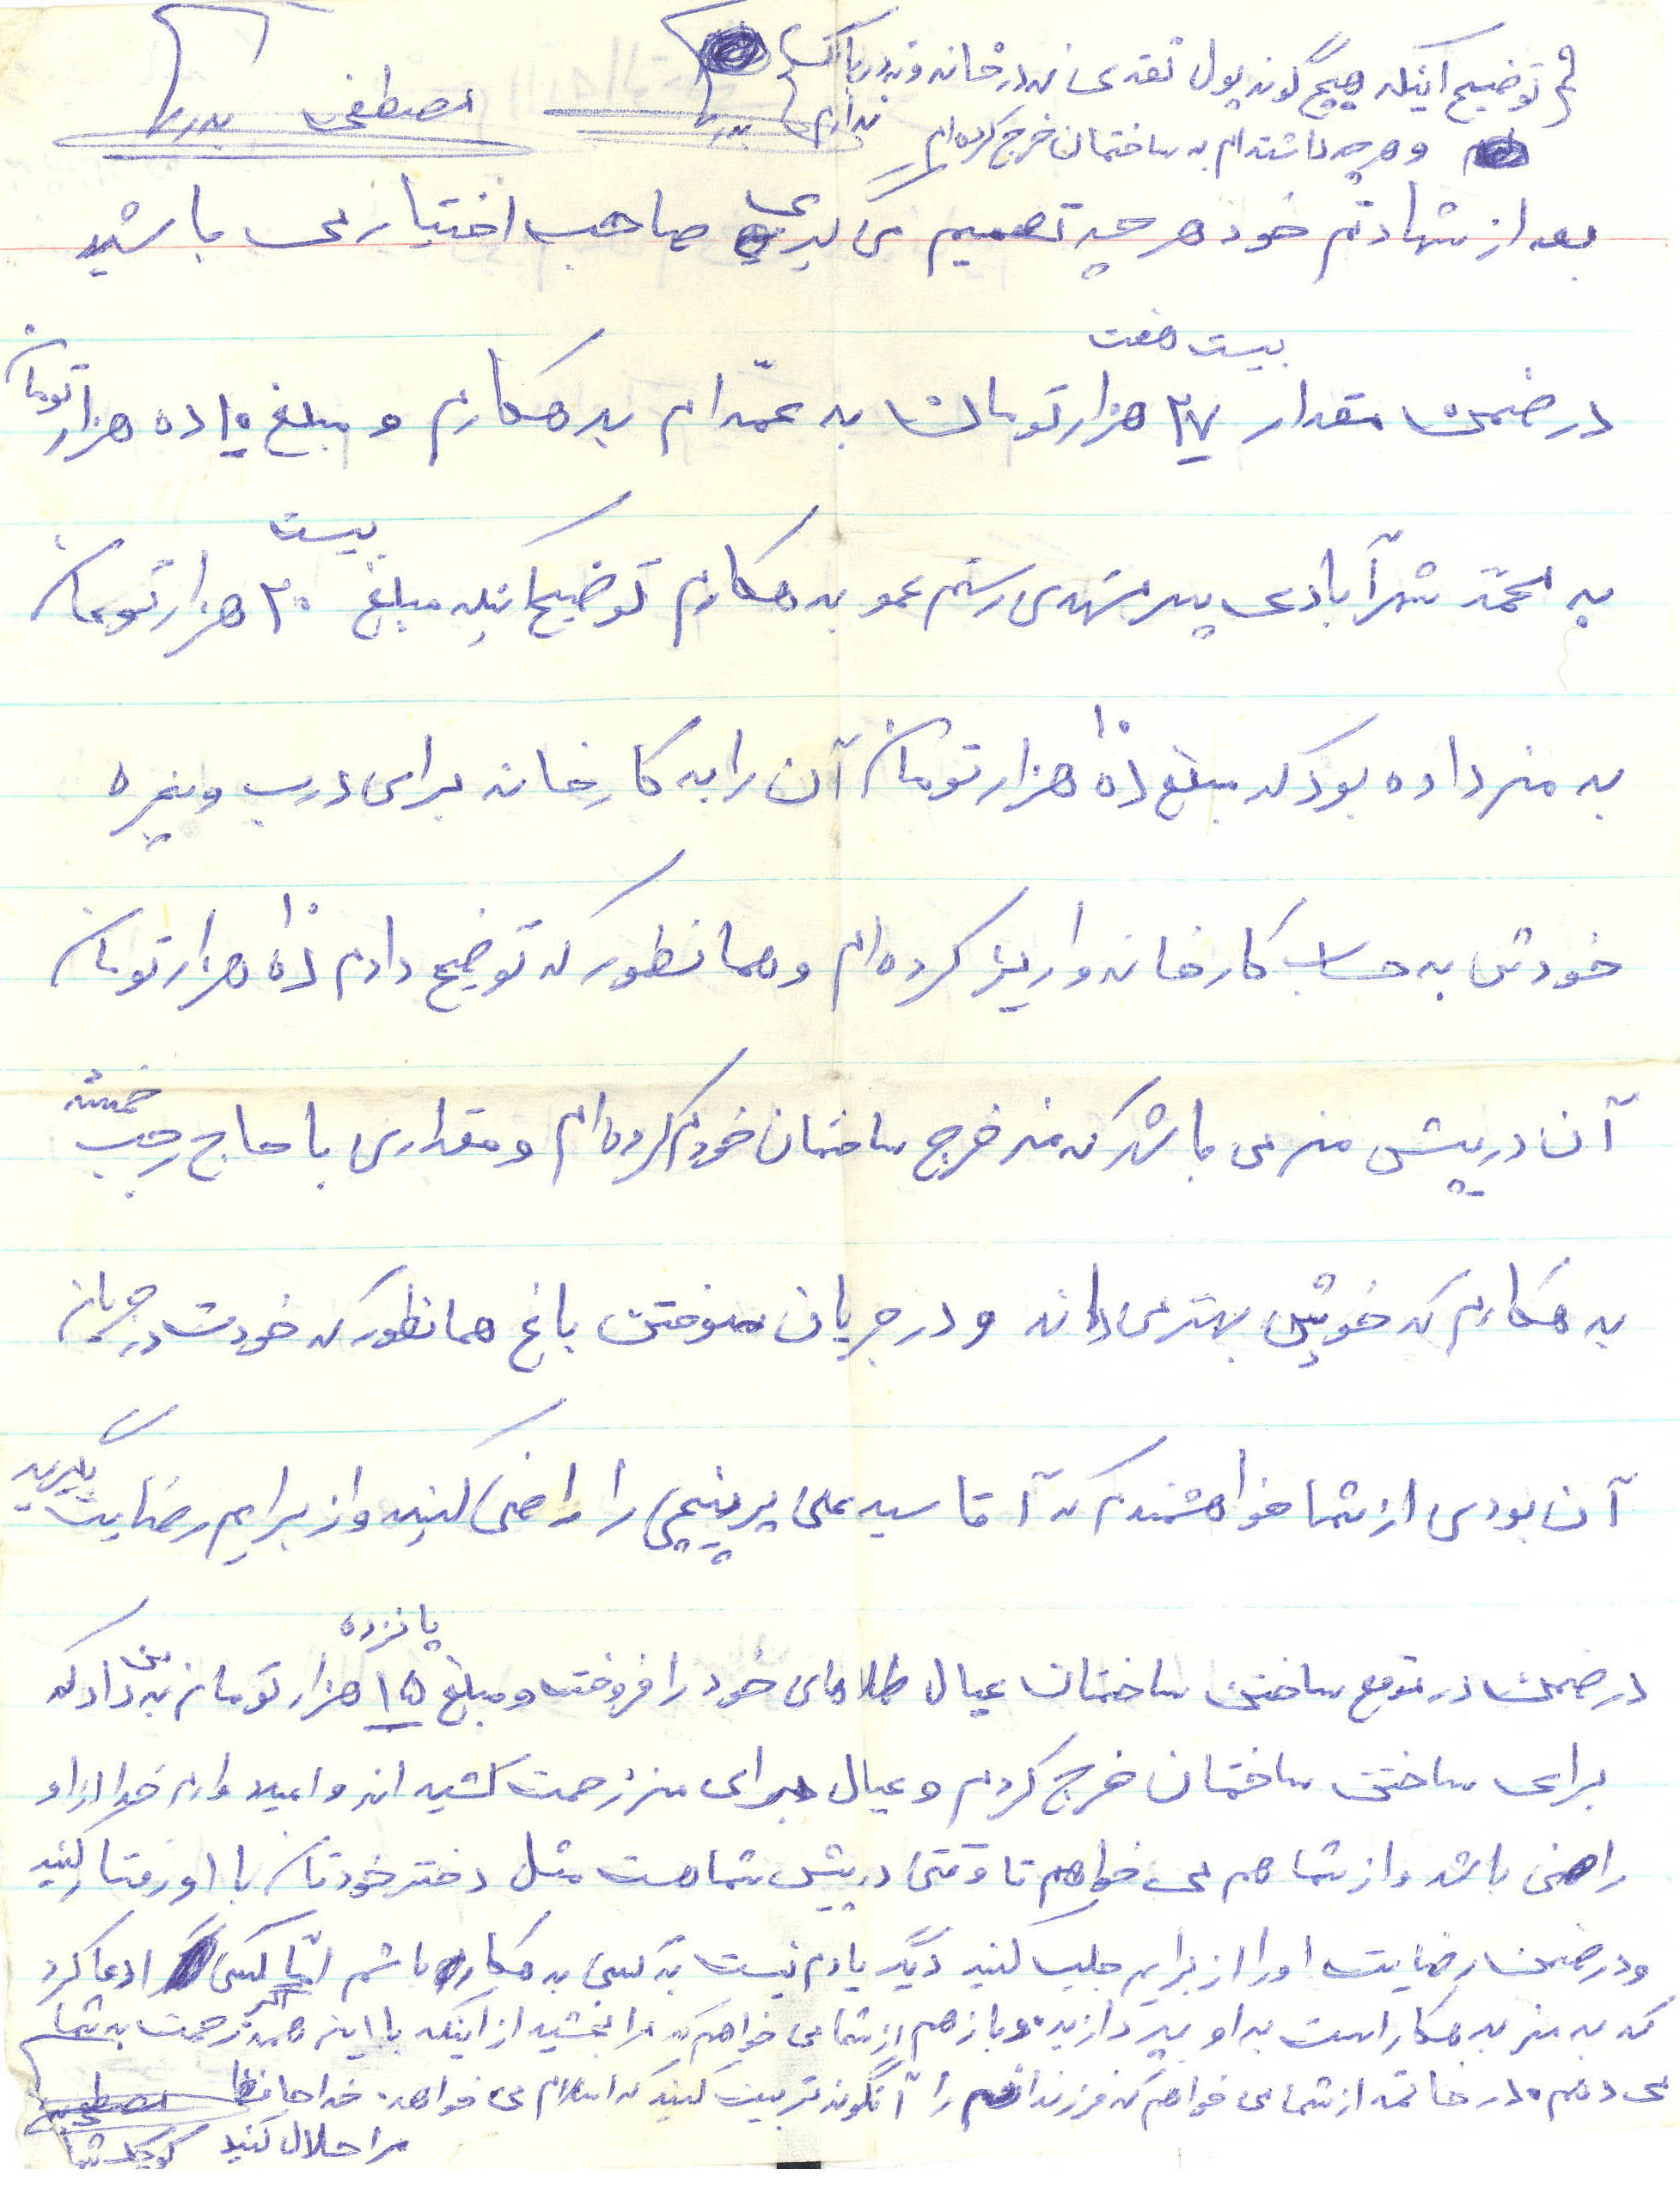 توضیح اینکه هیچ گونه پول نقدی نه در خانه و نه در بانک
ندارم
و هر چه داشته‌ام به ساختمان خرج کرده‌ام
مصطفی
بعد از شهادتم خود هر چه تصمیم می گیری صاحب اختیار می باشید
بیست هفت
در ضمن مقدار ۲۷ هزار تومان به عمّه‌ام بدهکارم و مبلغ ۱۰ ده هزار تومان
بیست
به محمّد شهرآبادی پسر مهدی رستم عمو بدهکارم توضیح اینکه مبلغ ۲۰ هزار تومان
به من داده بود که مبلغ ده ۱۰ هزار تومان آن را به کارخانه برای درب و پنجره
خودش به حساب کارخانه واریز کرده‌ام و همانطور که توضیح دادم ده ۱۰ هزار تومان
آن در پیش من می باشد که من خرج ساختمان خودم کرده‌ام و مقداری با حاج رجب خمسه
بدهکارم که خودش بهتر می داند و در جریان فروختن باغ همانطور که خودت در جریان
آن بودی از شما خواهشمندم که آقا سید علی را راضی کنید و از برایم رضایت بگیرید
پانزده
در ضمن در موقع ساختن ساختمان عیال طلاهای خود را فروخت و مبلغ ۱۵ هزار تومان به من داد که
برای ساختن ساختمان خرج کردم و عیال برای من زحمت کشیده اند و امیدوارم خدا از او
راضی باشد و از شما هم می خواهم تا وقتی در پیش شماست مثل دختر خودتان با او رفتار کنید
و در ضمن رضایت او را از برایم جلب کنید دیگر یادم نیست به کسی بدهکار باشم اگر کسی ادعا کرد
که به من بدهکار است به او بپردازید. و باز هم از شما می خواهم که مرا ببخشید از اینکه با این همه زحمت به شما
می دهم. در خاتمه از شما می خواهم که فرزندانم را آنگونه تربیت کنید که اسلام می خواهد. خداحافظ
مرا حلال کنید کوچک شما مصطفی